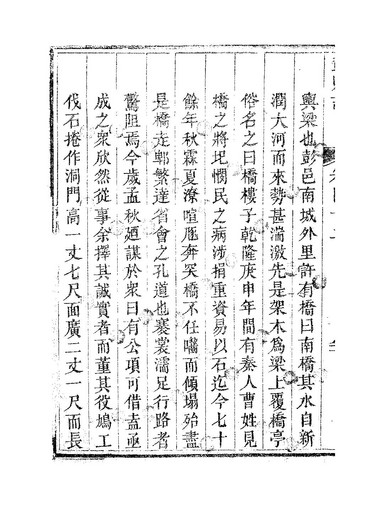 輿梁也彭邑南城外里許有橋曰南橋其水自新
潤大河而來勢甚湍激先是架木為梁上覆橋亭
俗名之曰橋樓子乾隆庚申年間有秦人曹姓見
橋之將圯憫民之病涉捐重資易以石迄今七十
餘年秋霖夏潦喧豗奔突橋不任囓而傾塌殆盡
是橋走郫繁達省會之孔道也褰裳濡足行路者
驚阻焉今歲孟秋廼謀於眾曰有公項可借盍亟
成之眾欣然從事余擇其誠實者而董其役鳩工
伐石捲作洞門高一丈七尺面廣二丈一尺而長